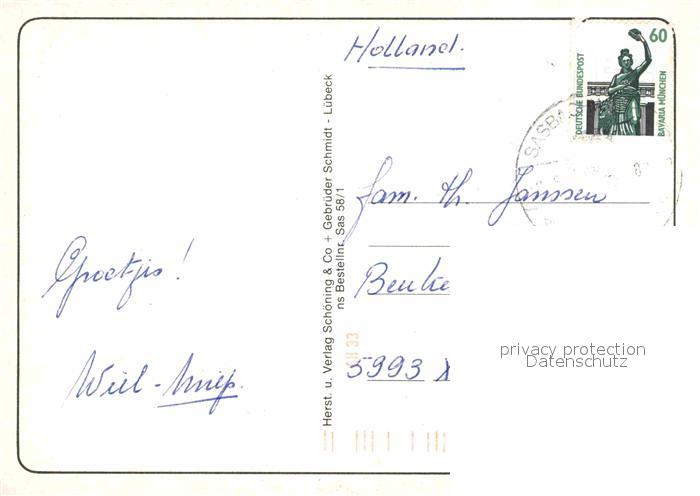 Holland.
60
DEUTSCHE BUNDESPOST
BAVARIA MÜNCHEN
SASBA
Fam. Th. Janssen
Groetjes!
Wiel - Miep.
Herst. u. Verlag Schöning & Co + Gebrüder Schmidt - Lübeck
ns Bestellnr. Sas 58/1
5993
privacy protection
Datenschutz